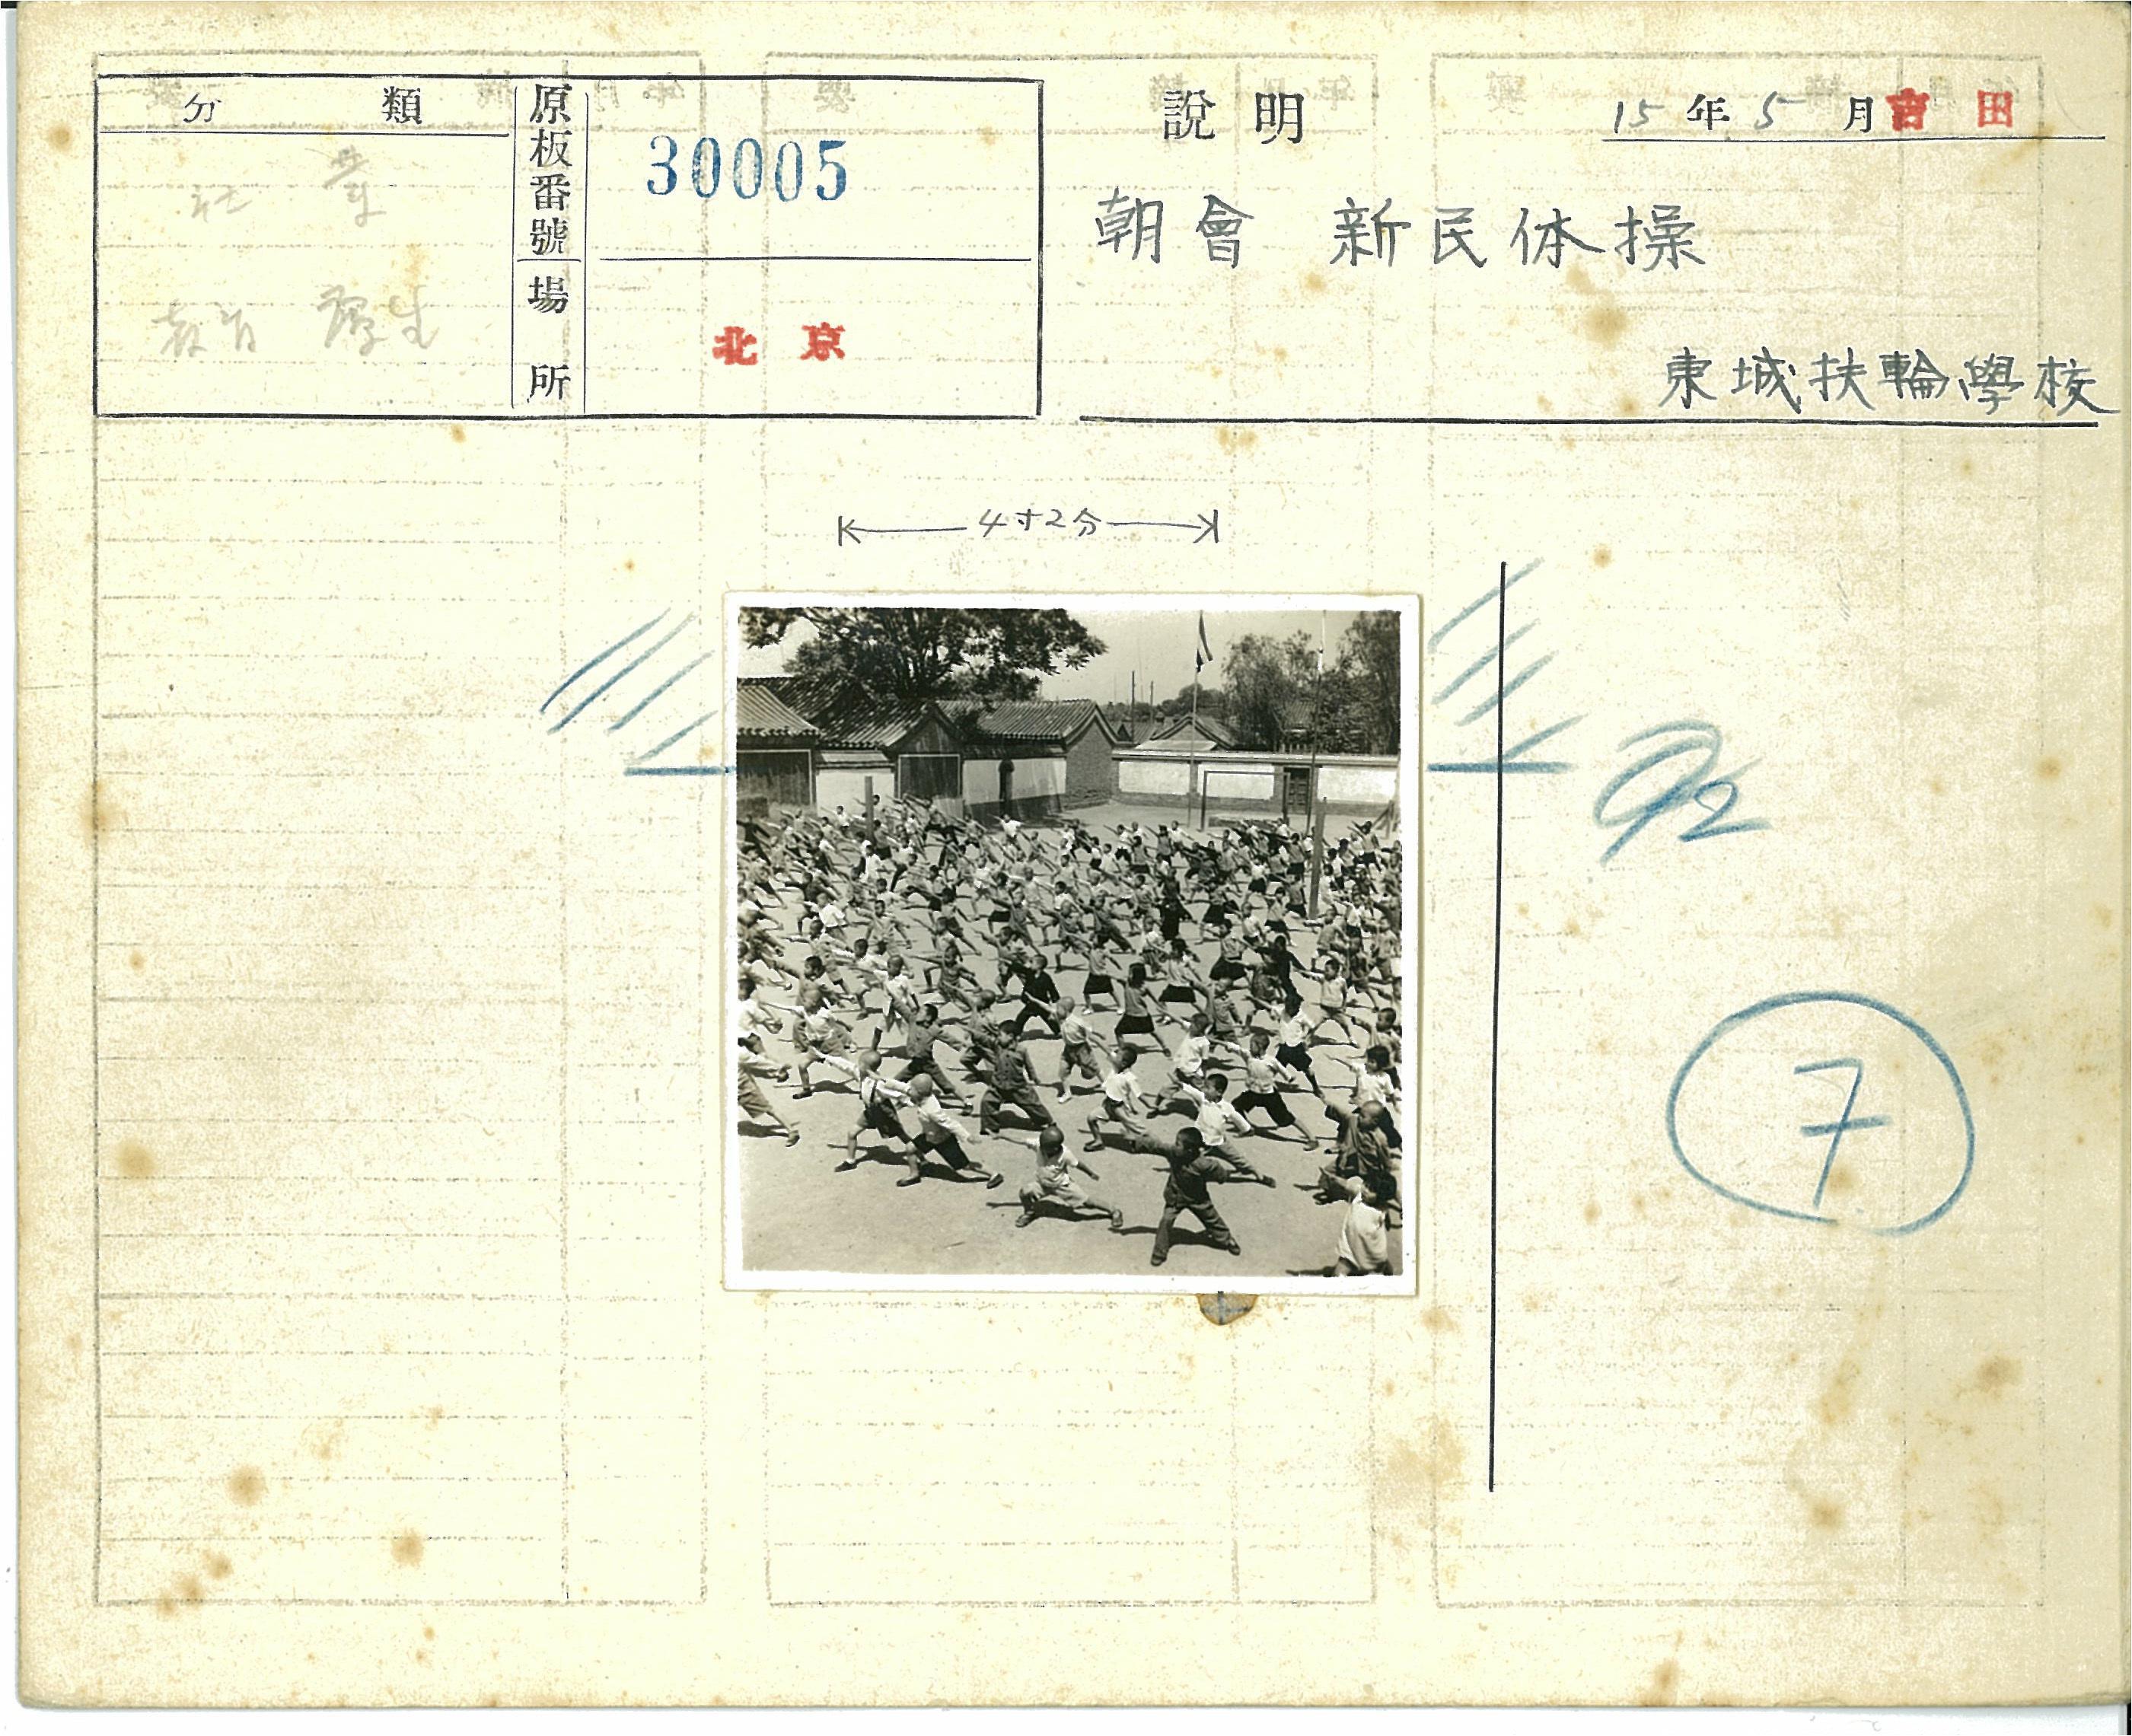 分類
社 業
教育 厚生
原板番號
30005
場所
北京
說明
15年5月 吉田
朝會 新民体操
東城扶輪學校
4寸2分
92
7